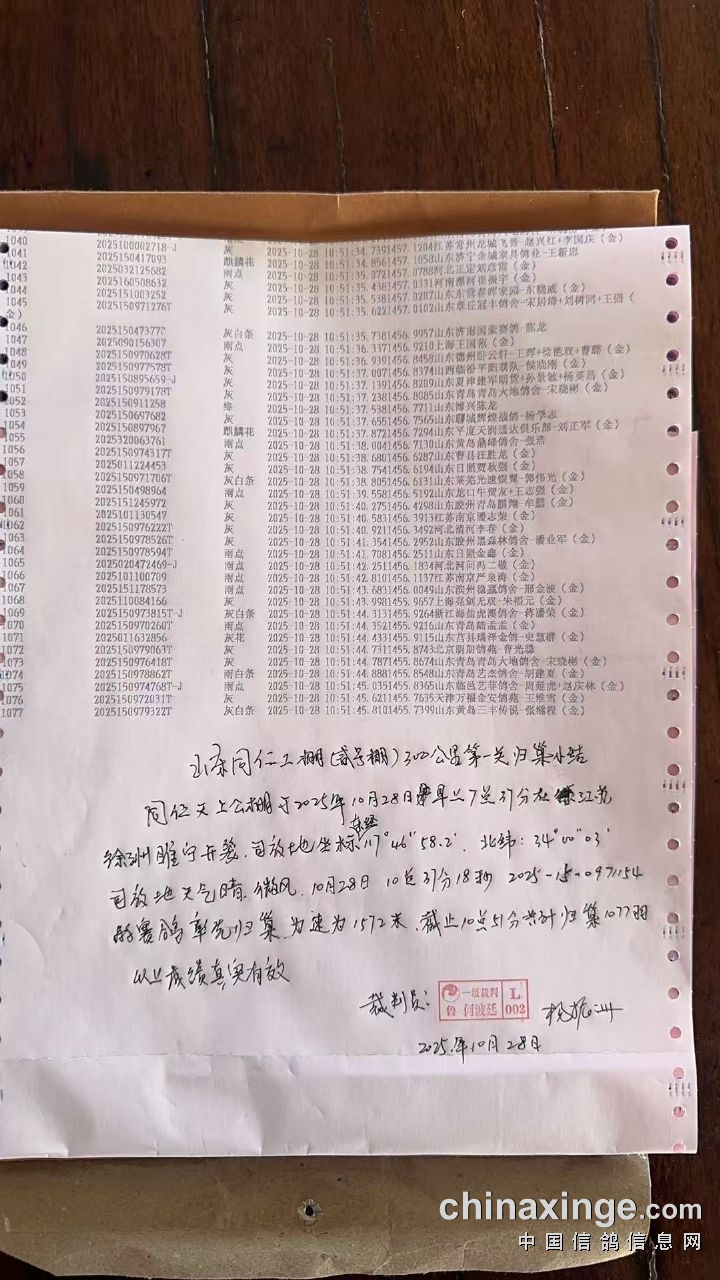 1040
1041 2025100002718-J 雨点 2025-10-28 10:51:34.7391457.1204江苏常州龙城飞誉-赵兴红+李国庆（金）
1042 2025150417093 灰 2025-10-28 10:51:34.8561457.1058山东济宁金城家具鸽业-王新忠
1043 2025032125682 麒麟花 2025-10-28 10:51:35.0721457.0788河北正定刘彦霞（金）
1044 2025160508632 雨点 2025-10-28 10:51:35.4381457.0331河南漯河崔振宇（金）
1045 2025151003252 灰 2025-10-28 10:51:35.5381457.0207山东东营春晖家园-东晓威（金）
2025150971276T 灰 2025-10-28 10:51:35.6221457.0102山东章丘冠丰鸽舍-宋居绛+刘树同+王强（
金）
1046
2025150473​77C 灰白条 2025-10-28 10:51:35.7381456.9957山东济南国豪赛鸽-陈龙
2025090156307 雨点 2025-10-28 10:51:36.3371456.9210上海王国范（金）
2025150970628T 灰 2025-10-28 10:51:36.9391456.8458山东德州卧云轩-王辉+徐艳双+曹璐（金）
1050 2025150977578T 灰 2025-10-28 10:51:37.0071456.8374山西临汾平阳战队-侯晓刚（金）
1051 2025150895659-J 灰 2025-10-28 10:51:37.1391456.8209山东夏津建军期货+孙景敏+杨英昌（金）
1052 2025150979178T 灰 2025-10-28 10:51:37.2381456.8085山东青岛青岛大地鸽舍-宋晓彬（金）
1053 2025150911258 绛 2025-10-28 10:51:37.5381456.7711山东博兴陈龙
1054 2025150697682 灰 2025-10-28 10:51:37.6551456.7565山东聊城辉煌战鸽-杨学志
1055 2025150897967 麒麟花 2025-10-28 10:51:37.8721456.7294山东平度天润通达俱乐部-刘正军（金）
1056 2025320063761 雨点 2025-10-28 10:51:38.0041456.7130山东黄岛鼎峰鸽舍-张浩
1057 2025150974317T 灰 2025-10-28 10:51:38.6801456.6287山东曹县汪胜龙（金）
1058 2025011224453 灰 2025-10-28 10:51:38.7541456.6194山东日照贾秋强（金）
1059 2025150971706T 灰白条 2025-10-28 10:51:38.8051456.6131山东莱芜光速银翼-郭伟光（金）
1060 2025150498964 雨点 2025-10-28 10:51:39.5581456.5192山东龙口牛贺友+王志强（金）
1061 2025151245972 灰 2025-10-28 10:51:40.2751456.4298山东胶州青岛鹏翔-牟懿（金）
1062 2025101130547 灰 2025-10-28 10:51:40.5831456.3913江苏南京潘志荣（金）
1063 2025150976222T 灰 2025-10-28 10:51:40.9211456.3492河北清河李春（金）
1064 2025150978526T 灰 2025-10-28 10:51:41.3541456.2952山东胶州黑森林鸽舍-潘业军（金）
1065 2025150978594T 雨点 2025-10-28 10:51:41.7081456.2511山东日照金鑫（金）
1066 2025020472469-J 雨点 2025-10-28 10:51:42.2511456.1834河北河间冯二敬（金）
1067 2025101100709 雨点 2025-10-28 10:51:42.8101456.1137江苏南京严泉涛（金）
1068 2025151178573 雨点 2025-10-28 10:51:43.6831456.0049山东滨州稳赢鸽舍-邢金波（金）
1069 2025110084166 灰 2025-10-28 10:51:43.9981455.9657上海亮剑无双-朱樑元（金）
2025150973815T-J 灰白条 2025-10-28 10:51:44.3131455.9264浙江海盐虎溪鸽舍-蒋潘荣（金）
1070 2025150970260T 雨点 2025-10-28 10:51:44.3521455.9216山东青岛陆孟孟（金）
1071 2025011632856 灰花 2025-10-28 10:51:44.4331455.9115山东莒县瑞泽金鸽-史慧群（金）
1072 2025150979063T 灰 2025-10-28 10:51:44.7311455.8743北京朗朗鸽苑-曹光璐
2025150976418T 灰 2025-10-28 10:51:44.7871455.8674山东青岛青岛大地鸽舍-宋晓彬（金）
1074 2025150978862T 雨白条 2025-10-28 10:51:44.8881455.8548山东青岛艺杰鸽舍-胡建夏（金）
1075 2025150974768T-J 雨点 2025-10-28 10:51:45.0351455.8365山东临邑艺菲鸽舍-周延虎+赵庆林（金）
1076 2025150972031T 灰 2025-10-28 10:51:45.6211455.7635天津万福金安鸽苑-王维雪（金）
1077 2025150979322T 灰白条 2025-10-28 10:51:45.8101455.7399山东黄岛三丰传说-张继程（金）
山东同仁工棚（贰号棚）300公里第一关归巢小结
同仁天上公棚于2025年10月28日早上7点31分在江苏
徐州睢宁开笼，司放地坐标东经117°46″58.2′ 北纬：34°00″03′
司放地天气晴，微风，10月28日10点31分18秒 2025-15-0971154
的赛鸽率先归巢，分速为1572米，截止10点51分共计归巢1077羽
以上成绩真实有效
裁判员： 一级裁判 鲁 何波廷 L 002
2025年10月28日
chinaxinge.com
中国信鸽信息网